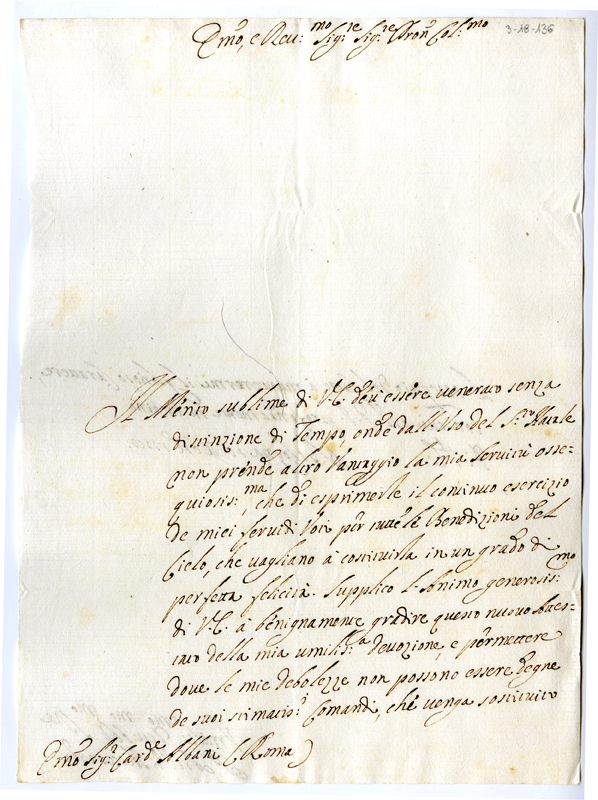 3-18-136
Em͂o, e Reu:mo Sig:re Sig:re Pron͂ Col:mo
Il Merito sublime di V.E. deu' essere venerato senza
distinzione di Tempo, onde dall'Uso del S.to Natale
non prende altro Vantaggio la mia Seruitù osse-
quiosis:ma, che di esprimerle il continuo esercizio
de miei feruidi Voti per tutte le Benedizioni del
Cielo, che uagliano à costituirla in un grado di
perfetta felicità. Supplico l'Animo generosis:mo
di V.E. à benignamente gradire questo nuouo Attes-
tato della mia umilis:a deuozione, e permettere
doue le mie debolezze non possono essere degne
de suoi stimatis:i Comandi, che uenga sostituito
Em͂o Sig:r Card:e Albani (Roma)